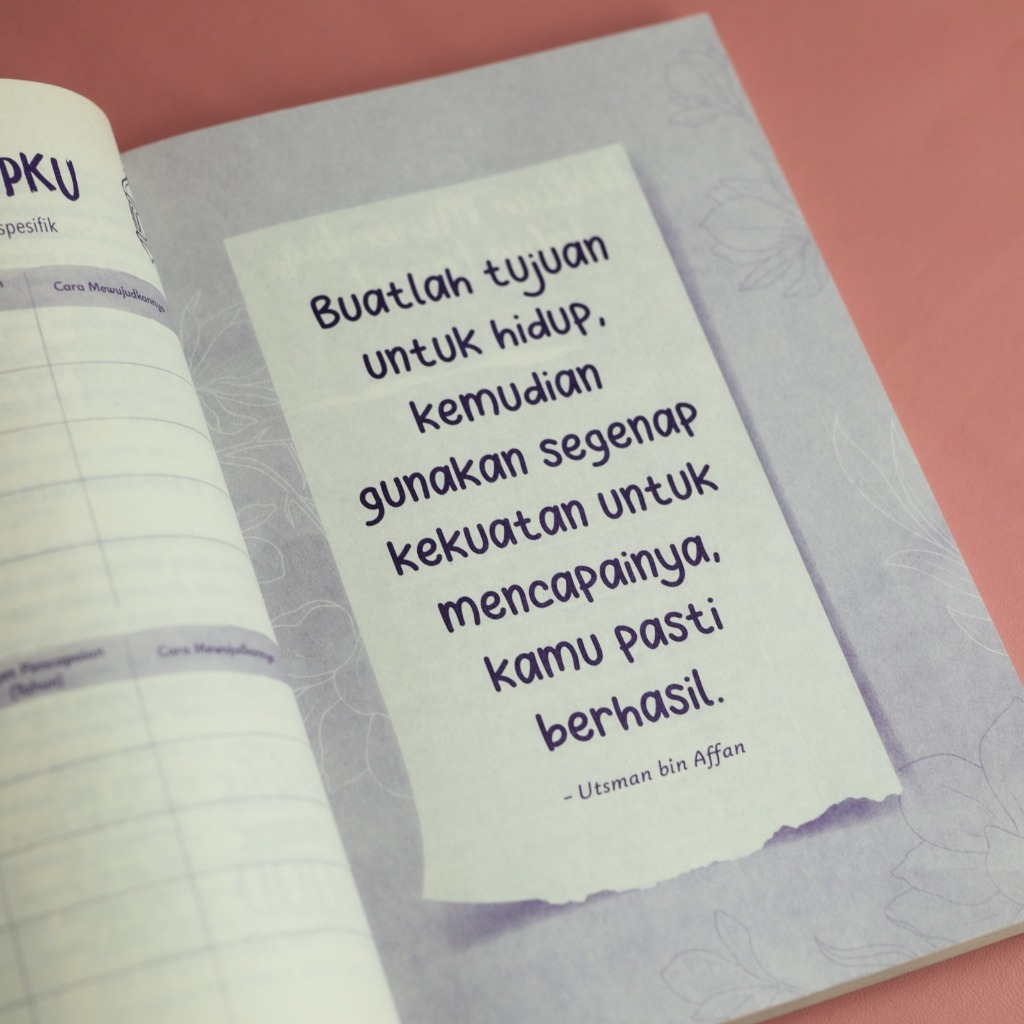 PKU
spesifik
Cara Mewujudkannya
Pencapaian
(Tahun)
Cara Mewujudkannya
Buatlah tujuan
untuk hidup,
kemudian
gunakan segenap
kekuatan untuk
mencapainya,
kamu pasti
berhasil.
- Utsman bin Affan